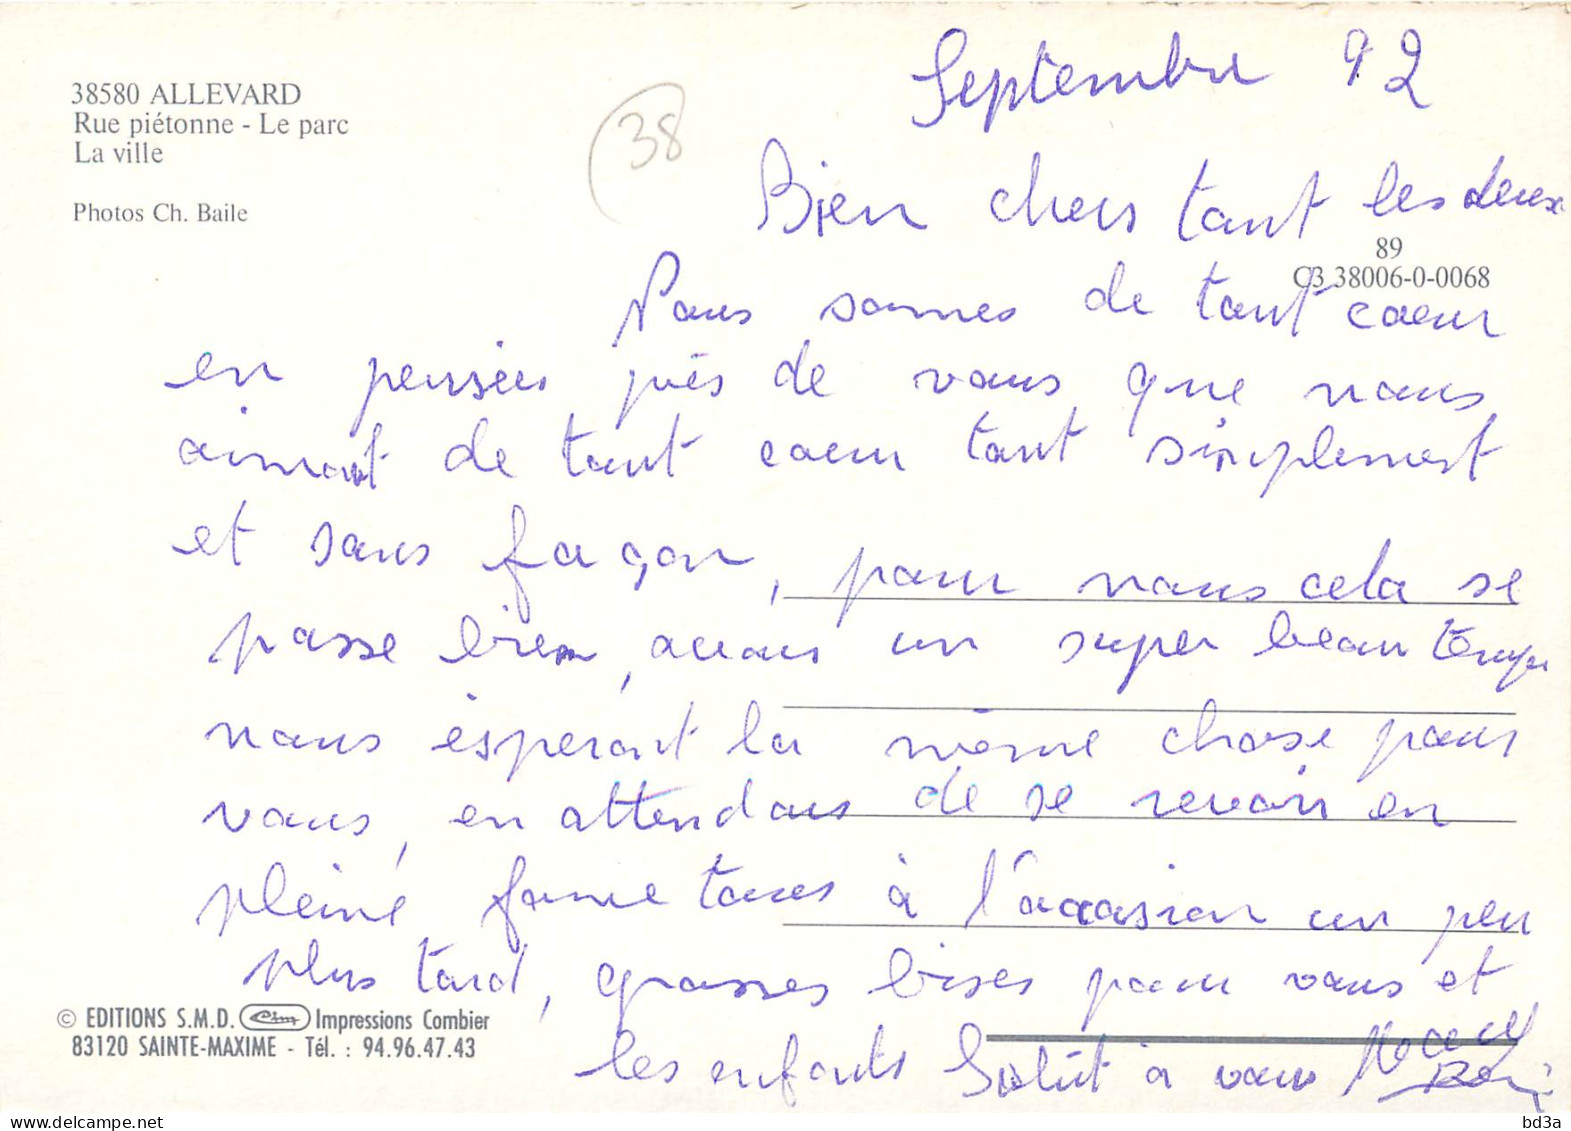 38580 ALLEVARD
Rue piétonne - Le parc
La ville
Photos Ch. Baile
38
Septembre 92
Bien chers tout les deux
89
C3 38006-0-0068
Nous somes de tout coeur
en pensées près de vous que nous
aimont de tout coeur tout simplement
et sans façon, pour nous cela se
passe bien, avons un super beau temps
nous ésperont la même chose pour
vous, en attendans de se revoir en
pleine forme tous à l'occasion un peu
plus tard, grosses bises pour vous et
les enfants Salut à vous
© EDITIONS S.M.D. Cim Impressions Combier
83120 SAINTE-MAXIME - Tél. : 94.96.47.43
bd3a